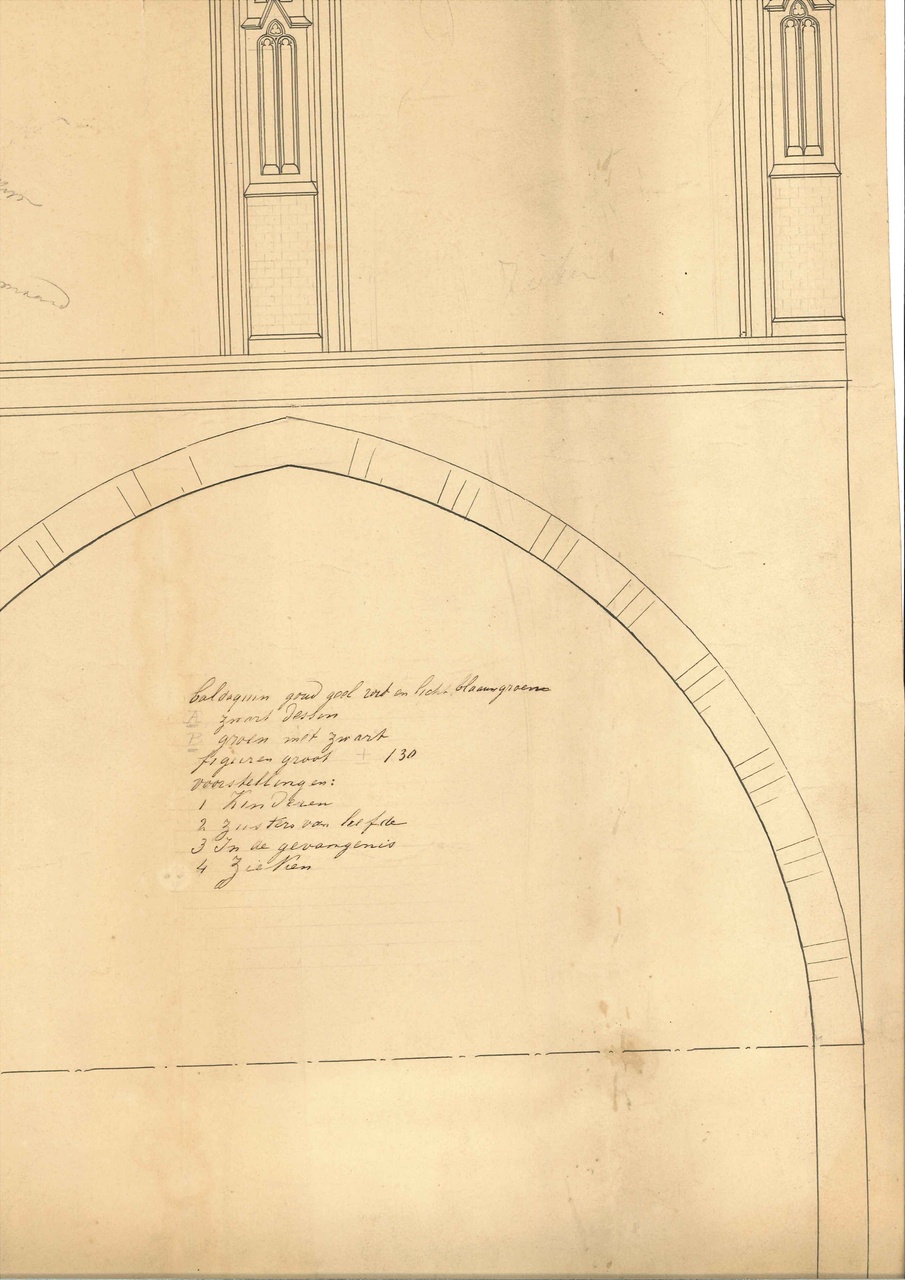 Baldaquin goud geel rood en licht blaauwgroen
A zwart dessen
B groen met zwart
figuren groot ± 1.30
voorstellingen:
1 Kinderen
2 Zusters van liefde
3 In de gevangenis
4 Zieken